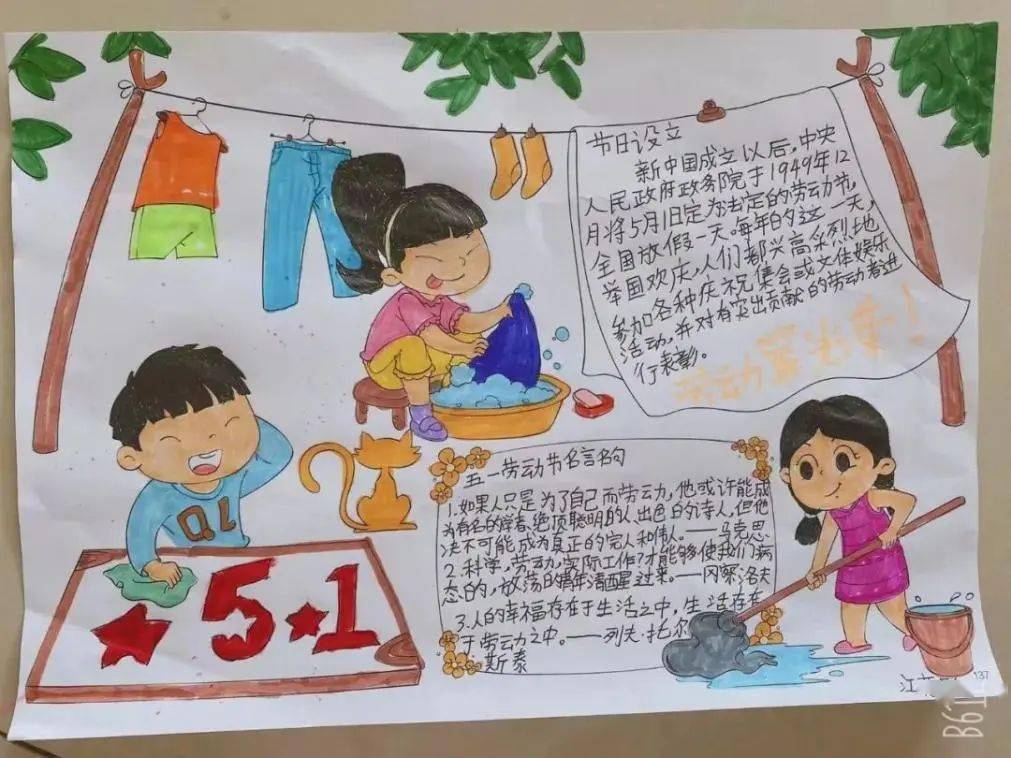 节日设立
新中国成立以后,中央
人民政府政务院于1949年12
月将5月1日定为法定的劳动节,
全国放假一天。每年的这一天,
举国欢庆,人们都兴高采烈地
参加各种庆祝集会或文体娱乐
活动,并对有突出贡献的劳动者进
行表彰。
劳动最光荣!
QL
5★1
五一劳动节名言名句
1.如果人只是为了自己而劳动,他或许能成
为有名的学者、绝顶聪明的人、出色的诗人,但他
决不可能成为真正的完人和伟人。——马克思
2.科学,劳动,实际工作?才能够使我们病
态的,放荡的青年清醒过来。——冈察洛夫
3.人的幸福存在于生活之中,生活存在
于劳动之中。——列夫·托尔
斯泰
江
137